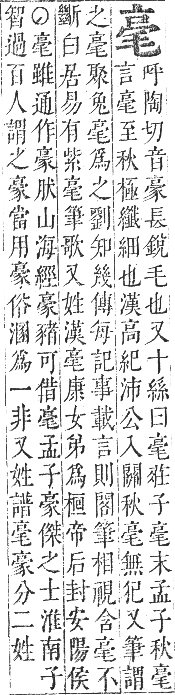 毫 呼陶切音豪長銳毛也又十絲曰毫莊子毫末孟子秋
言毫至秋極纖細也漢高紀沛公入關秋毫無犯又筆謂
之毫聚兎毫爲之劉知幾傳每記事載言則閣筆相視含毫不
斷白居易有紫毫筆歌又姓漢毫康女弟爲桓帝后封安陽侯
○毫雖通作豪肰山海經豪豬可借毫孟子豪傑之士淮南子
智過百人謂之豪當用豪俗溷爲一非又姓譜毫豪分二姓